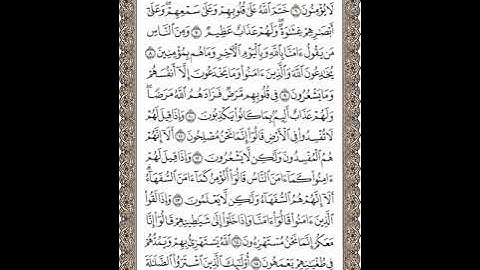 لَا يُؤْمِنُونَ ٦ خَتَمَ ٱللَّهُ عَلَىٰ قُلُوبِهِمْ وَعَلَىٰ سَمْعِهِمْ ۖ وَعَلَىٰٓ
أَبْصَٰرِهِمْ غِشَٰوَةٌ ۖ وَلَهُمْ عَذَابٌ عَظِيمٌ ٧ وَمِنَ ٱلنَّاسِ
مَن يَقُولُ ءَامَنَّا بِٱللَّهِ وَبِٱلْيَوْمِ ٱلْءَاخِرِ وَمَا هُم بِمُؤْمِنِينَ ٨
يُخَٰدِعُونَ ٱللَّهَ وَٱلَّذِينَ ءَامَنُوا۟ وَمَا يَخْدَعُونَ إِلَّآ أَنفُسَهُمْ
وَمَا يَشْعُرُونَ ٩ فِى قُلُوبِهِم مَّرَضٌ فَزَادَهُمُ ٱللَّهُ مَرَضًا ۖ
وَلَهُمْ عَذَابٌ أَلِيمٌۢ بِمَا كَانُوا۟ يَكْذِبُونَ ١٠ وَإِذَا قِيلَ لَهُمْ
لَا تُفْسِدُوا۟ فِى ٱلْأَرْضِ قَالُوٓا۟ إِنَّمَا نَحْنُ مُصْلِحُونَ ١١ أَلَآ إِنَّهُمْ
هُمُ ٱلْمُفْسِدُونَ وَلَٰكِن لَّا يَشْعُرُونَ ١٢ وَإِذَا قِيلَ لَهُمْ
ءَامِنُوا۟ كَمَآ ءَامَنَ ٱلنَّاسُ قَالُوٓا۟ أَنُؤْمِنُ كَمَآ ءَامَنَ ٱلسُّفَهَآءُ ۗ
أَلَآ إِنَّهُمْ هُمُ ٱلسُّفَهَآءُ وَلَٰكِن لَّا يَعْلَمُونَ ١٣ وَإِذَا لَقُوا۟
ٱلَّذِينَ ءَامَنُوا۟ قَالُوٓا۟ ءَامَنَّا وَإِذَا خَلَوْا۟ إِلَىٰ شَيَٰطِينِهِمْ قَالُوٓا۟ إِنَّا
مَعَكُمْ إِنَّمَا نَحْنُ مُسْتَهْزِءُونَ ١٤ ٱللَّهُ يَسْتَهْزِئُ بِهِمْ وَيَمُدُّهُمْ
فِى طُغْيَٰنِهِمْ يَعْمَهُونَ ١٥ أُو۟لَٰٓئِكَ ٱلَّذِينَ ٱشْتَرَوُا۟ ٱلضَّلَٰلَةَ